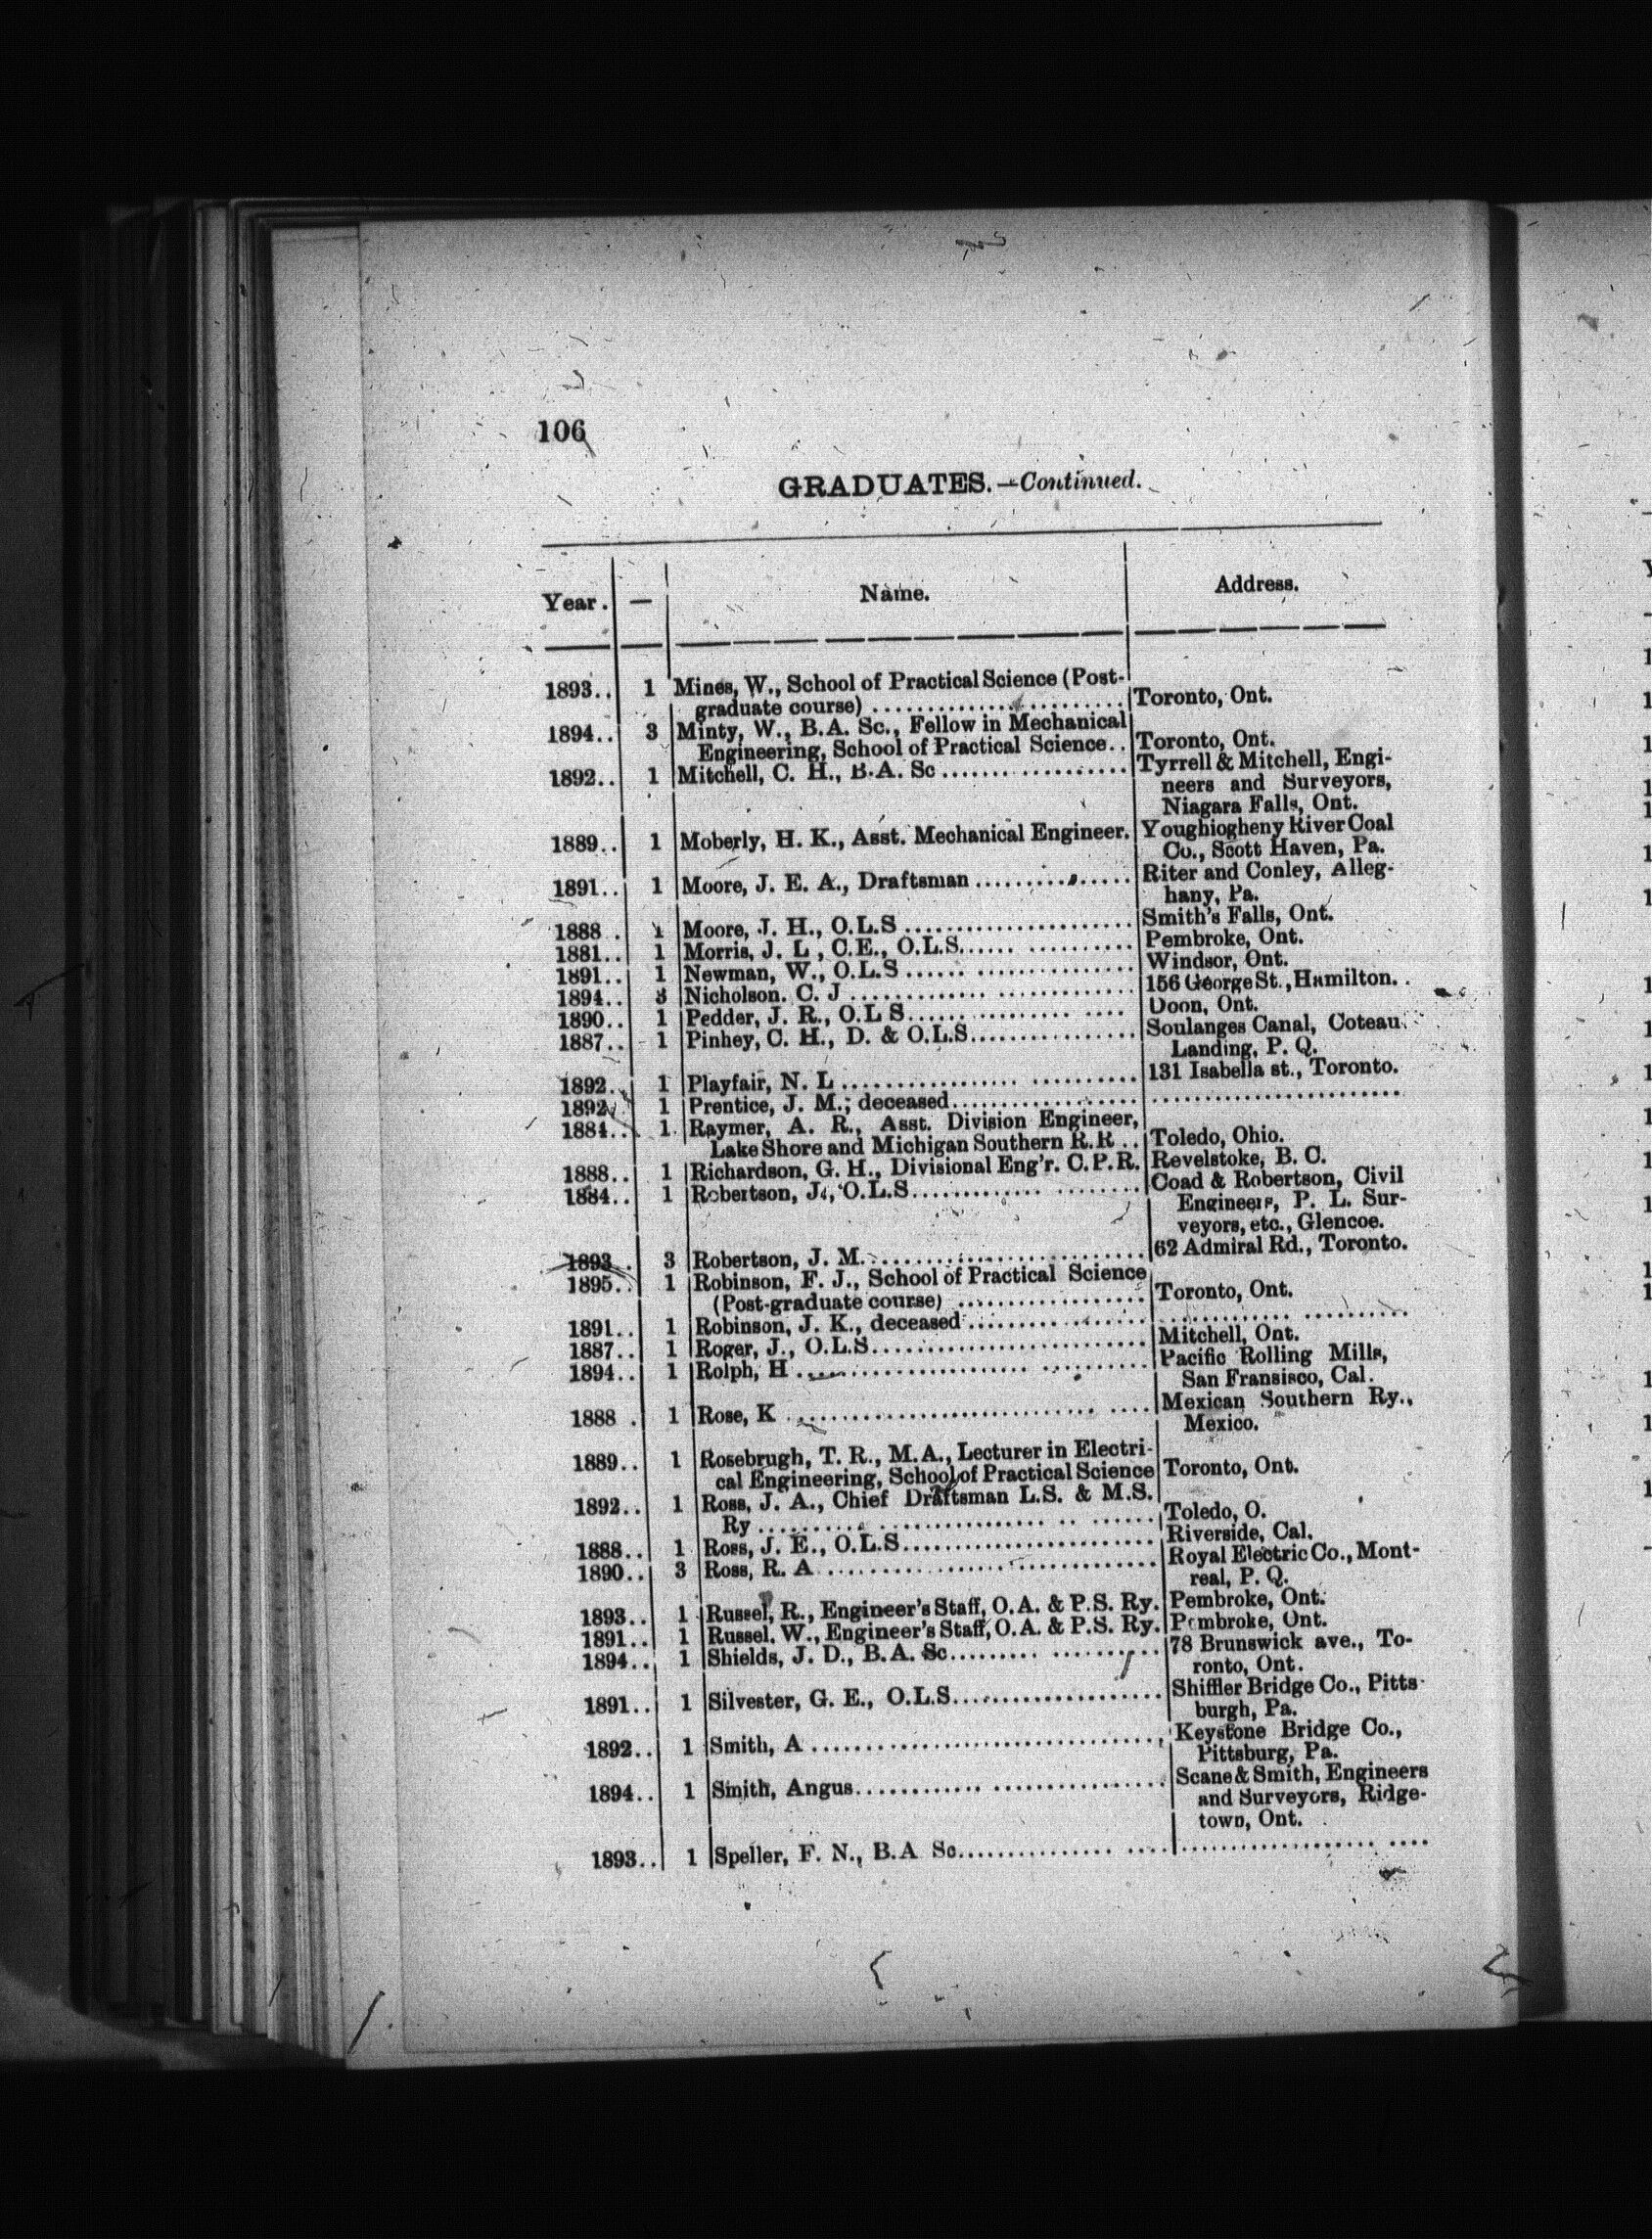 106
GRADUATES.—Continued.
Year. — Name. Address.
1893.. 1 Mines, W., School of Practical Science (Post-
graduate course) .......... Toronto, Ont.
1894.. 3 Minty, W., B.A. Sc., Fellow in Mechanical
Engineering, School of Practical Science.. Toronto, Ont.
1892.. 1 Mitchell, C. H., B.A. Sc .......... Tyrrell & Mitchell, Engi-
neers and Surveyors,
Niagara Falls, Ont.
1889.. 1 Moberly, H. K., Asst. Mechanical Engineer. Youghiogheny River Coal
Co., Scott Haven, Pa.
1891.. 1 Moore, J. E. A., Draftsman .......... Riter and Conley, Alleg-
hany, Pa.
1888 . 1 Moore, J. H., O.L.S .......... Smith's Falls, Ont.
1881.. 1 Morris, J. L , C.E., O.L.S. .......... Pembroke, Ont.
1891.. 1 Newman, W., O.L.S .......... Windsor, Ont.
1894.. 3 Nicholson. C. J .......... 156 George St., Hamilton. .
1890.. 1 Pedder, J. R., O.L S. .......... Doon, Ont.
1887.. 1 Pinhey, C. H., D. & O.L.S. .......... Soulanges Canal, Coteau
Landing, P. Q.
1892.. 1 Playfair, N. L .......... 131 Isabella st., Toronto.
1892. 1 Prentice, J. M., deceased ..........
1884.. 1 Raymer, A. R., Asst. Division Engineer,
Lake Shore and Michigan Southern R.R .. Toledo, Ohio.
1888.. 1 Richardson, G. H., Divisional Eng'r. C.P.R. Revelstoke, B. C.
1884.. 1 Robertson, J., O.L.S. .......... Coad & Robertson, Civil
Engineers, P. L. Sur-
veyors, etc., Glencoe.
1893 . 3 Robertson, J. M. .......... 62 Admiral Rd., Toronto.
1895.. 1 Robinson, F. J., School of Practical Science
(Post-graduate course) .......... Toronto, Ont.
1891.. 1 Robinson, J. K., deceased ..........
1887.. 1 Roger, J., O.L.S. .......... Mitchell, Ont.
1894.. 1 Rolph, H .......... Pacific Rolling Mills,
San Fransisco, Cal.
1888 . 1 Rose, K .......... Mexican Southern Ry.,
Mexico.
1889.. 1 Rosebrugh, T. R., M.A., Lecturer in Electri-
cal Engineering, School of Practical Science Toronto, Ont.
1892.. 1 Ross, J. A., Chief Draftsman L.S. & M.S.
Ry .......... Toledo, O.
1888.. 1 Ross, J. E., O.L.S. .......... Riverside, Cal.
1890.. 3 Ross, R. A .......... Royal Electric Co., Mont-
real, P. Q.
1893.. 1 Russel, R., Engineer's Staff, O.A. & P.S. Ry. Pembroke, Ont.
1891.. 1 Russel. W., Engineer's Staff, O.A. & P.S. Ry. Pembroke, Ont.
1894.. 1 Shields, J. D., B.A. Sc. .......... 78 Brunswick ave., To-
ronto, Ont.
1891.. 1 Silvester, G. E., O.L.S. .......... Shiffler Bridge Co., Pitts-
burgh, Pa.
1892.. 1 Smith, A .......... Keystone Bridge Co.,
Pittsburg, Pa.
1894.. 1 Smith, Angus .......... Scane & Smith, Engineers
and Surveyors, Ridge-
town, Ont.
1893.. 1 Speller, F. N., B.A Sc. ..........